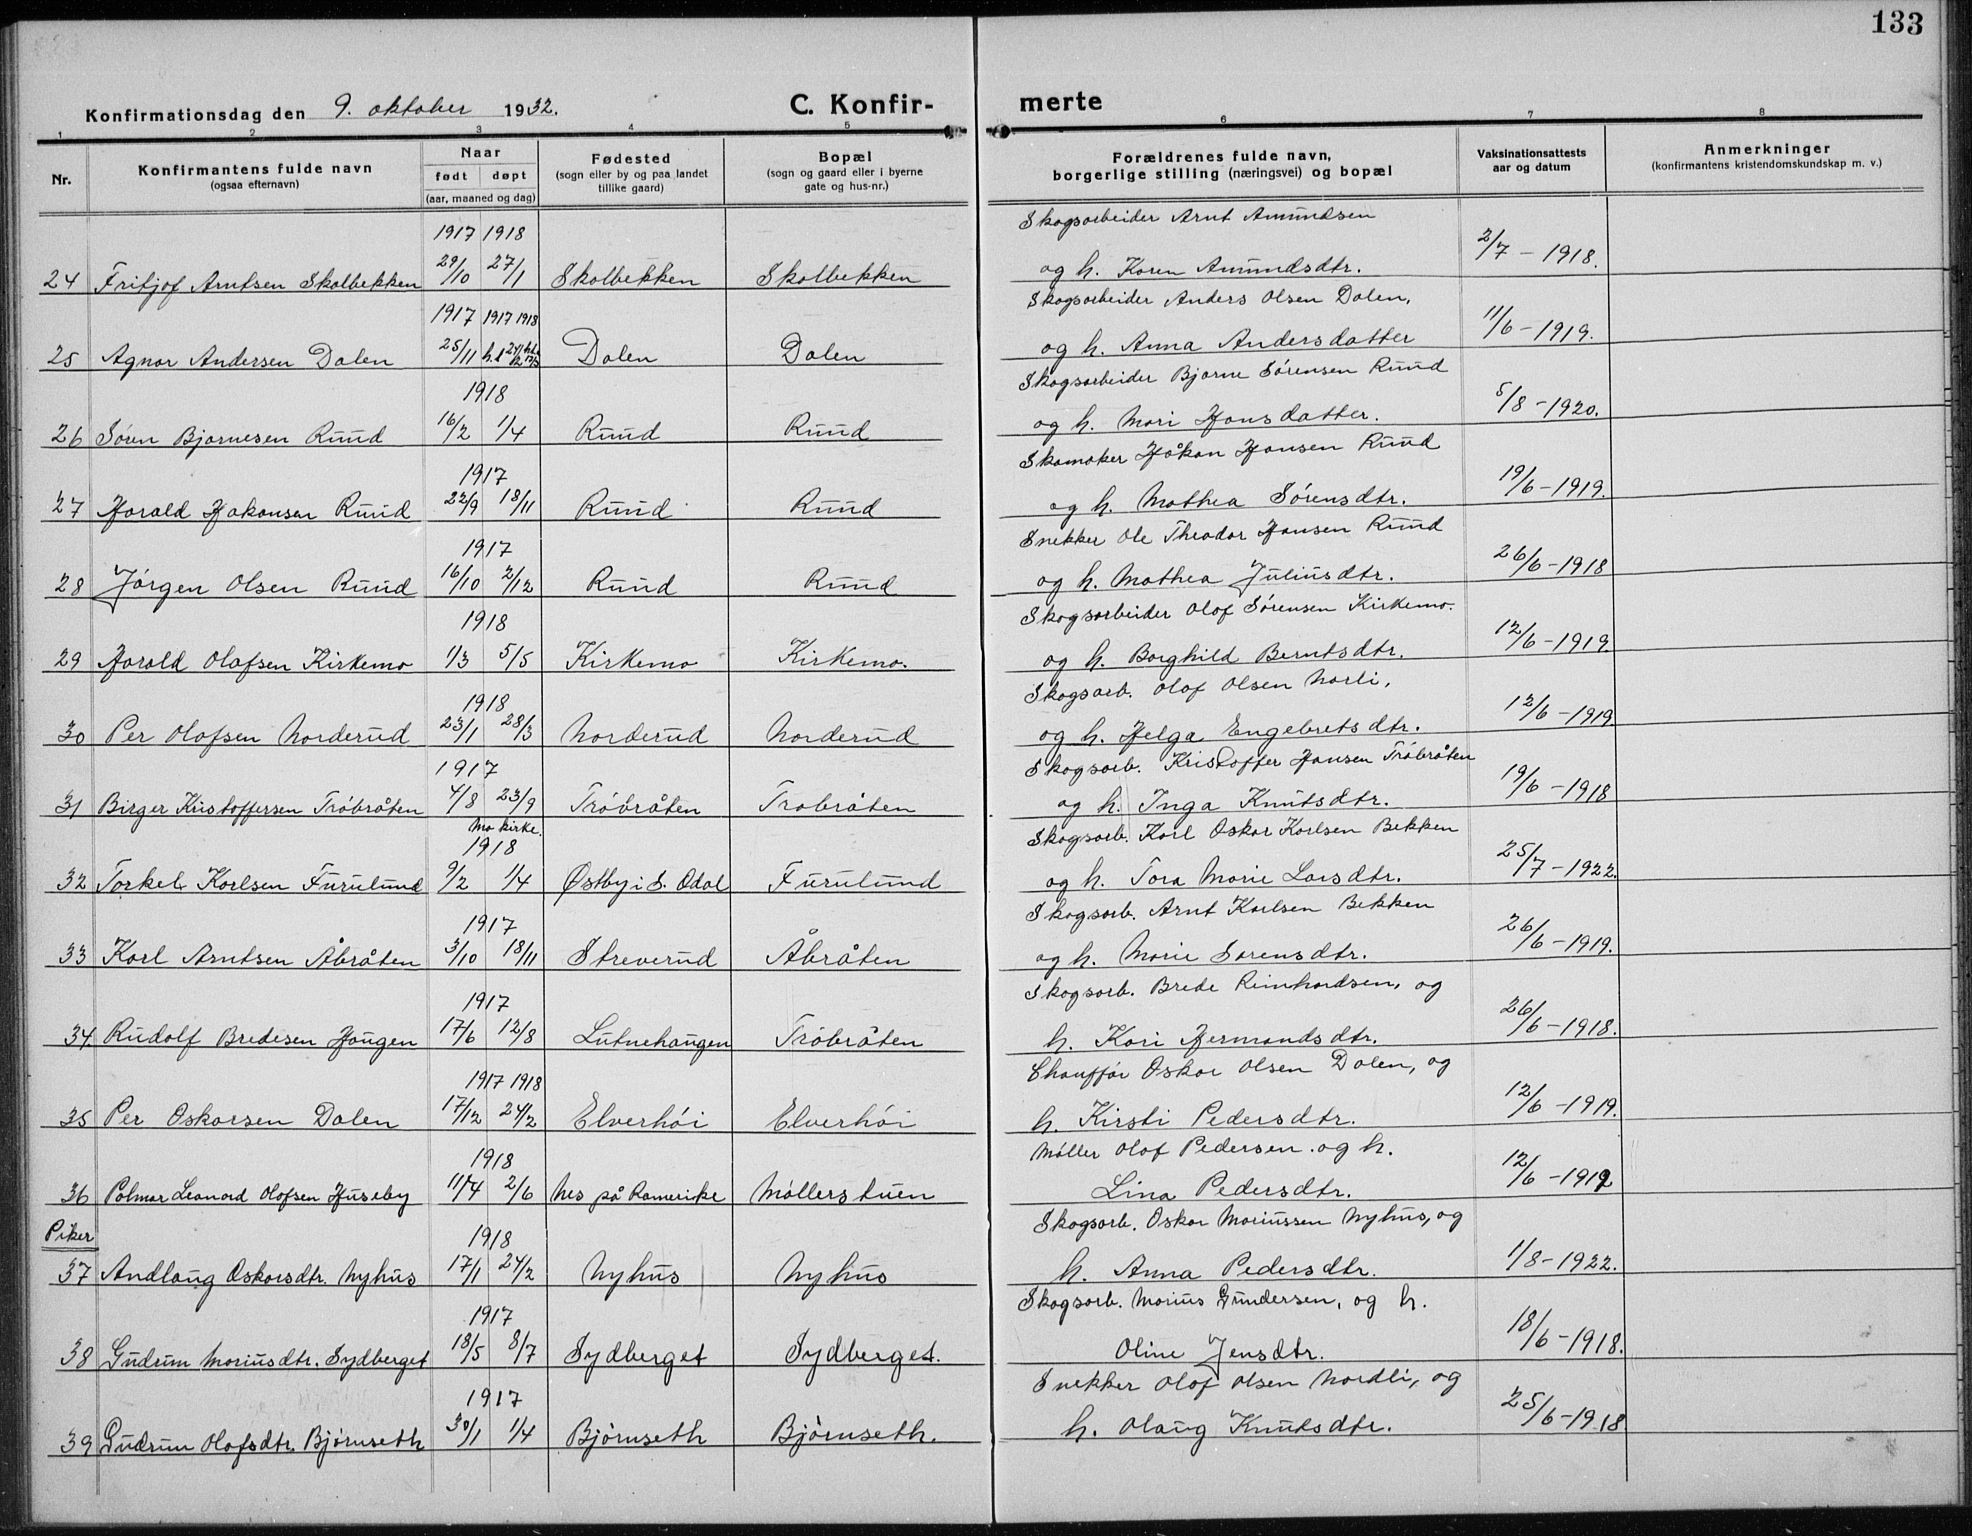 133
Konfirmationsdag den 9. oktober 1932. C. Konfir- merte
1 2 3 4 5 6 7 8
Nr. Konfirmantens fulde navn (ogsaa efternavn) Naar født døpt (aar, maaned og dag) Fødested (sogn eller by og paa landet tillike gaard) Bopæl (sogn og gaard eller i byerne gate og hus-nr.) Forældrenes fulde navn, borgerlige stilling (næringsvei) og bopæl Vaksinationsattests aar og datum Anmerkninger (konfirmantens kristendomskundskap m. v.)
1917 1918 Skogsarbeider Arnt Amundsen
24 Fritjof Arntsen Skolbekken 29/10 27/1 Skolbekken Skolbekken og h. Karen Amundsdtr. 2/7 - 1918.
1917 1917 1918 Skogsarbeider Anders Olsen Dalen,
25 Agnar Andersen Dalen 25/11 Dalen Dalen og h. Anna Andersdatter 11/6 - 1919.
1918 Skogsarbeider Bjarne Sørensen Ruud
26 Søren Bjarnesen Ruud 16/2 1/4 Ruud Ruud og h. Mari Hansdatter. 5/8 - 1920.
1917 Skomaker Håkon Hansen Ruud
27 Harald Hakonsen Ruud 22/9 18/11 Ruud Ruud og h. Mathea Sørensdtr. 19/6 - 1919.
1917 Snekker Ole Theodor Hansen Ruud
28 Jörgen Olsen Ruud 16/10 2/12 Ruud Ruud og h. Mathea Juliusdtr. 26/6 - 1918
1918 Skogsarbeider Olof Sörensen Kirkemo.
29 Harald Olafsen Kirkemo 1/3 5/5 Kirkemo Kirkemo. og h. Borghild Berntsdtr. 12/6 - 1919
1918 Skogsarb. Olof Olsen Norli,
30 Per Olofsen Norderud 23/1 28/3 Norderud Norderud og h. Helga Engebretsdtr. 12/6 - 1919.
1917 Skogsarb. Kristoffer Hansen Tröbråten
31 Birger Kristoffersen Tröbråten 4/8 23/9 Tröbråten Trobråten og h. Inga Knutsdtr. 19/6 - 1918
Mo kirke.
1918 Skogsarb. Karl Oskar Karlsen Bekken
32 Torkel Karlsen Furulund 9/2 1/4 Østby i S. Odal Furulund og h. Tora Marie Larsdtr. 25/7 - 1922.
1917 Skogsarb. Arnt Karlsen Bekken
33 Karl Arntsen Åbråten 3/10 18/11 Streverud Åbråten og h. Marie Sorensdtr. 26/6 - 1919.
1917 Skogsarb. Brede Reinhardsen, og
34. Rudolf Bredesen Haugen 17/6 12/8 Lutnehaugen Tröbråten h. Kari Hermandsdtr. 26/6 - 1918.
1917 1918 Chaufför Oskar Olsen Dalen, og
35 Per Oskarsen Dalen 17/12 24/2 Elverhöi Elverhöi h. Kirsti Pedersdtr. 12/6 - 1919.
1918 Möller Olof Pedersen og h.
36 Polmar Leonard Olofsen Huseby 11/4 2/6 Nes på Romerike Möllerstuen Lina Pedersdtr. 12/6 - 1919
Piker
1918 Skogsarb. Oskar Mariussen Nyhus, og
37 Andlaug Oskarsdtr. Nyhus 17/1 24/2 Nyhus Nyhus h. Anna Pedersdtr. 1/8 - 1922.
1917 Skogsarb. Marius Gundersen, og h.
38 Gudrun Mariusdtr. Sydberget 18/5 8/7 Sydberget Sydberget. Oline Jensdtr. 18/6 - 1918.
1917 Snekker Olof Olsen Nordli, og
39 Gudrun Olofsdtr. Björnseth 30/1 1/4 Björnseth Björnseth. h. Olaug Knutsdtr. 25/6 - 1918